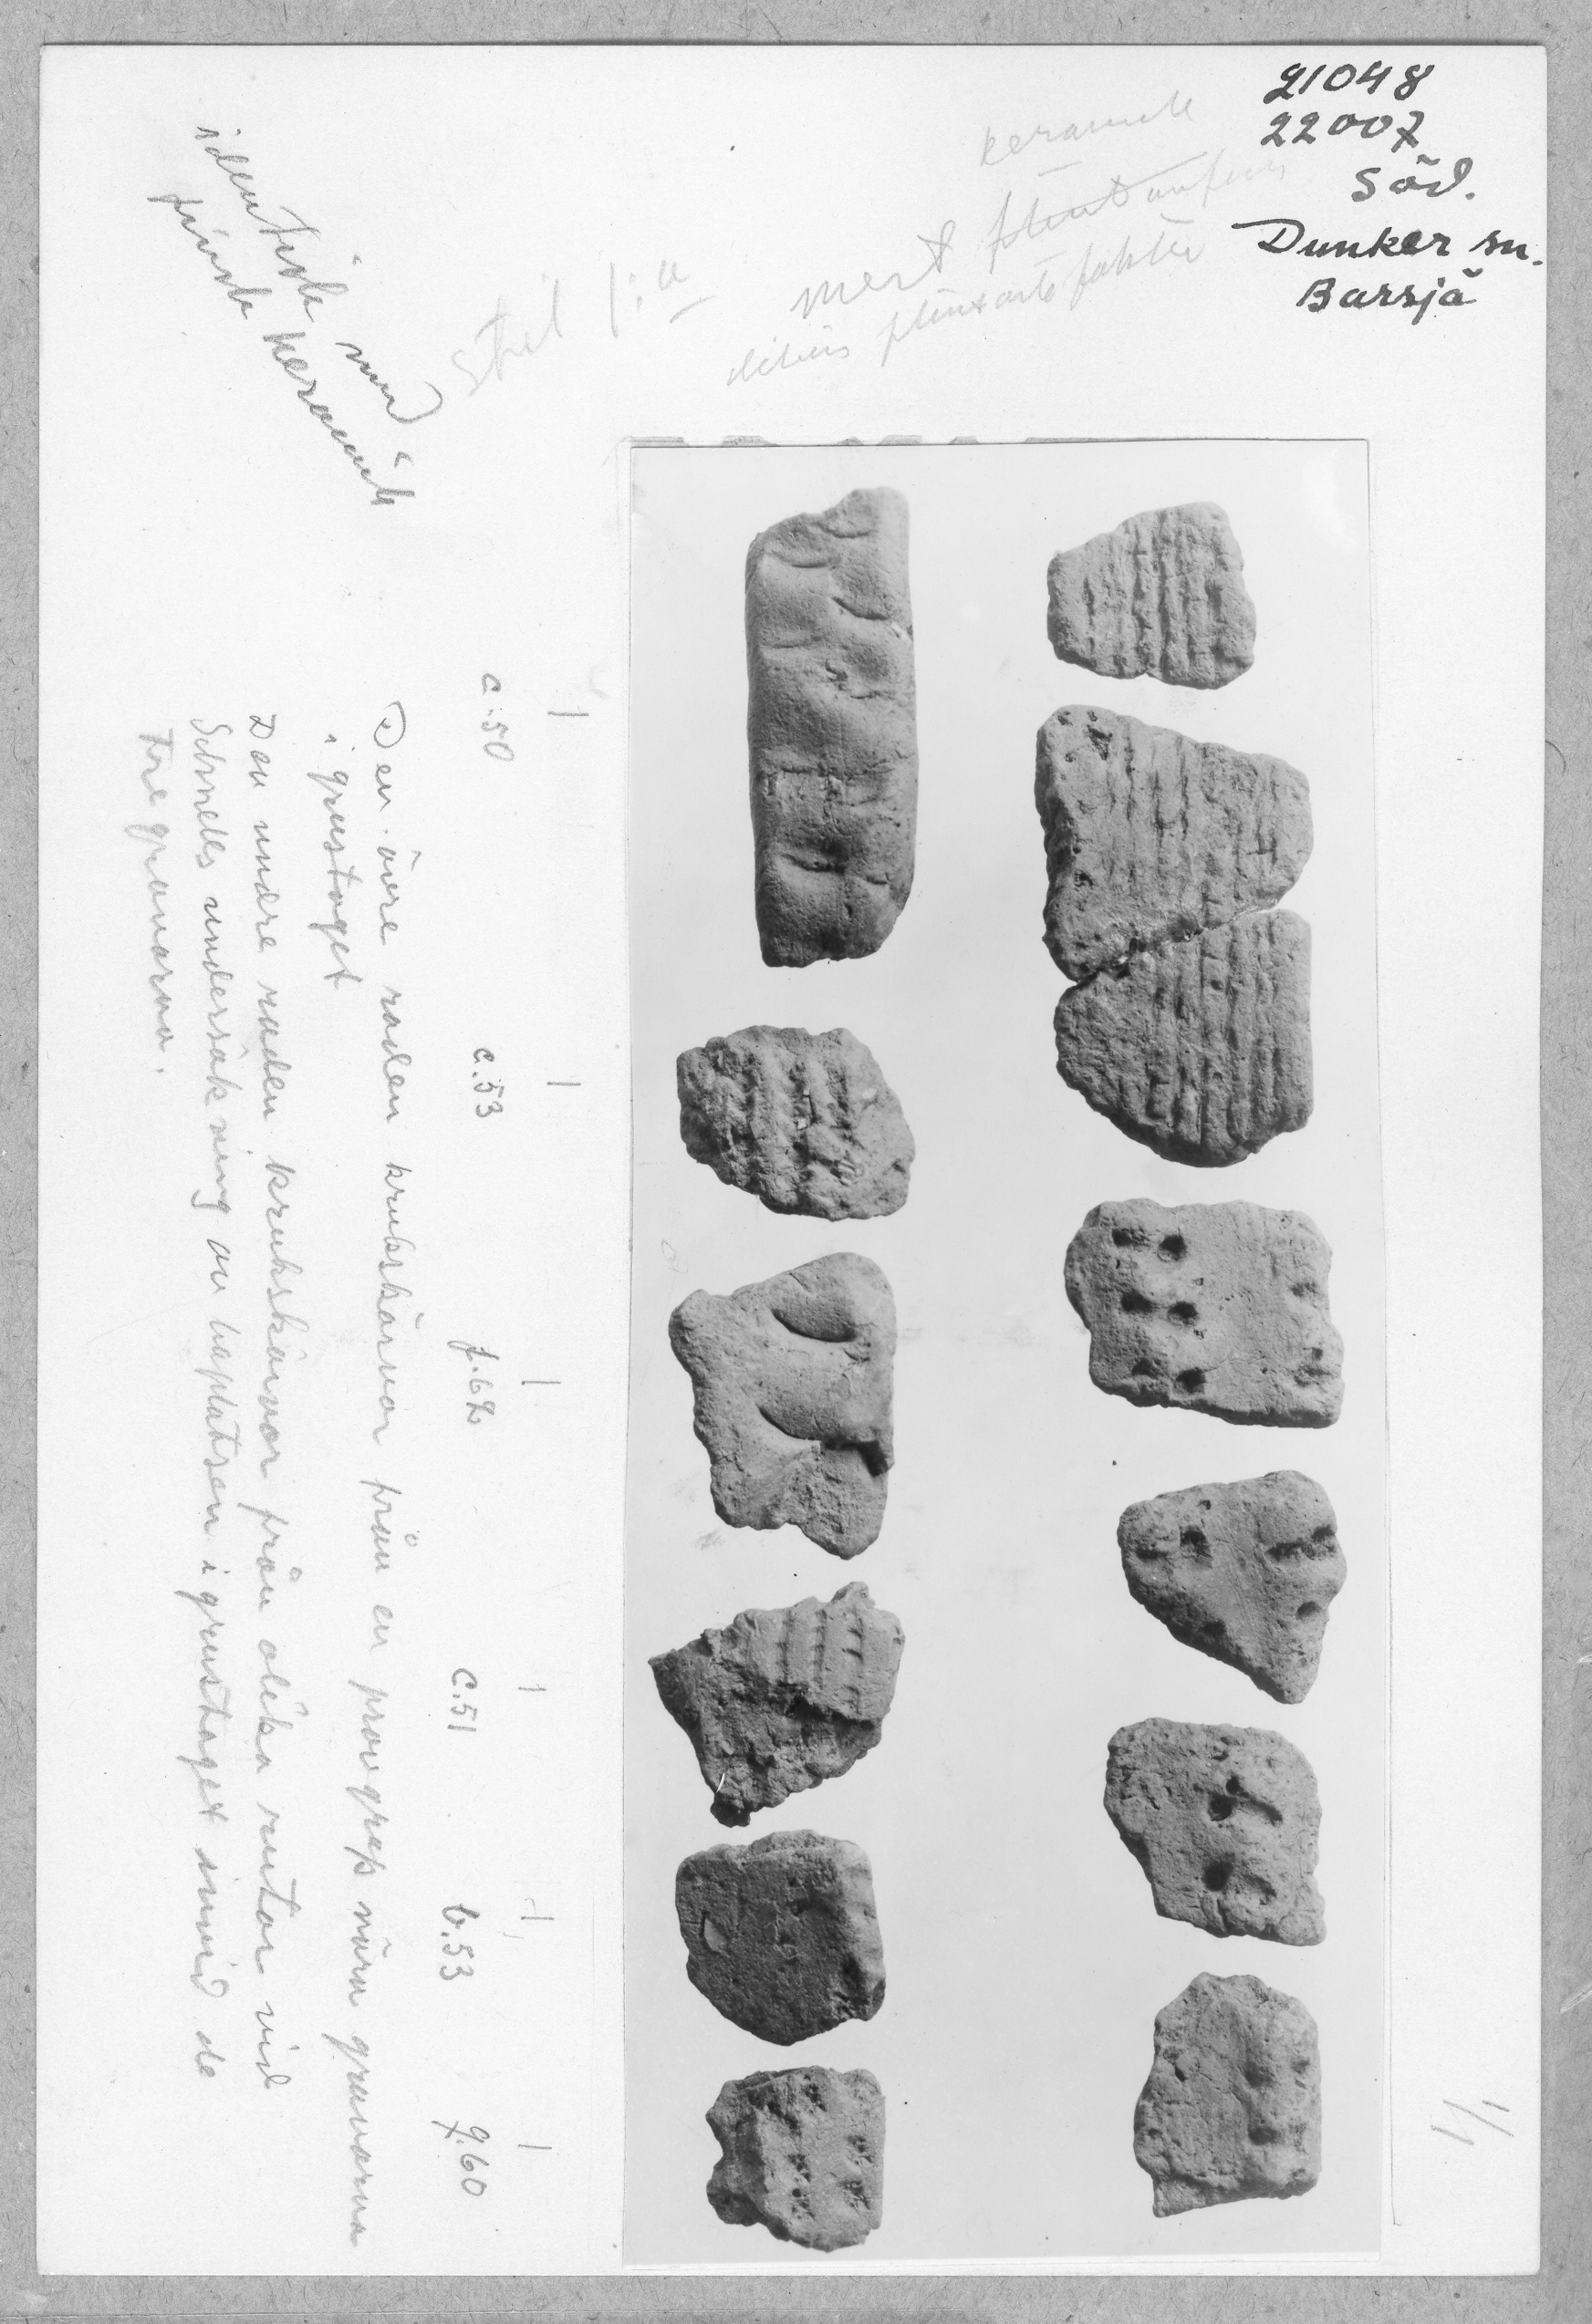 21048
22007
Söd.
Dunker sn.
Barsjä
keramik
mest
stil I:a
identisk med
finsk keramik
1/1
c.50 c.53 f.62 c.51 b.53 g.60
Den övre raden krukskärvor från en provgrop nära gravarna
i grustaget
Den undre raden krukskärvor från olika rutor vid
Schnells undersökning av boplatsen i grustaget invid de
tre gravarna.